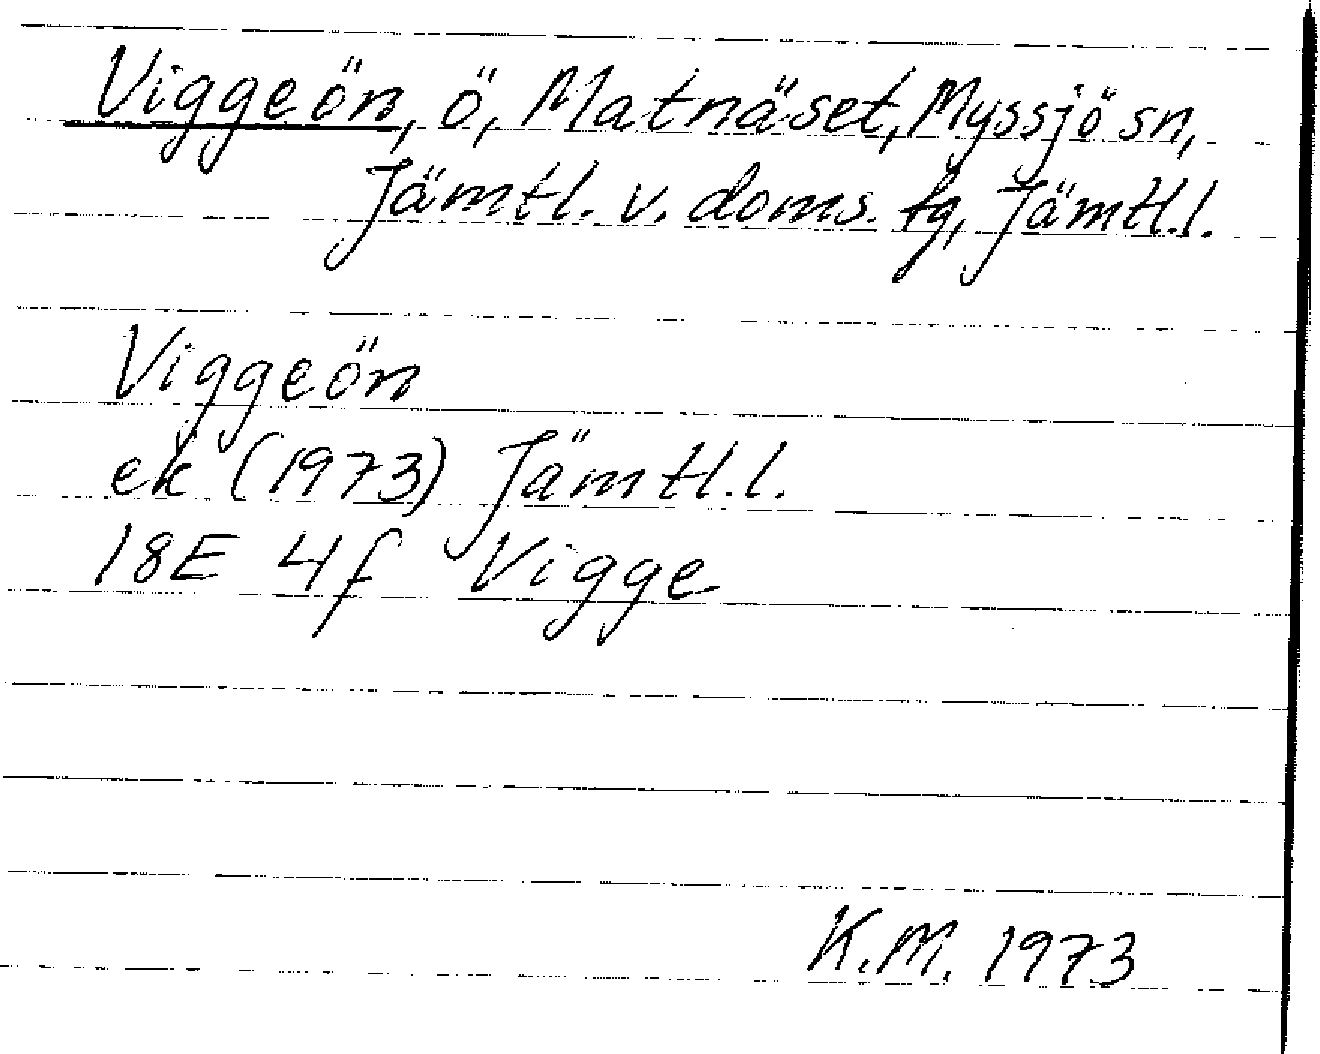 Viggeön, ö, Matnäset, Myssjö sn,
Jämtl. v. doms. tg, Jämtl.l.
Viggeön
ek (1973) Jämtl.l.
18E 4f Vigge
K.M. 1973